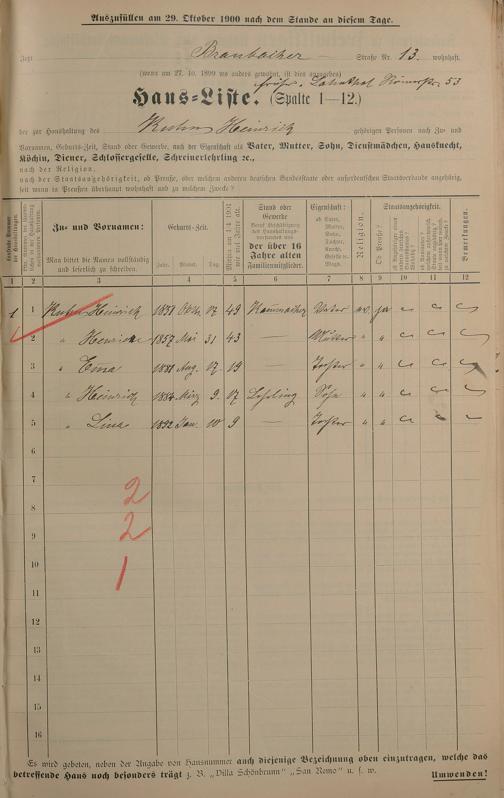 Auszufüllen am 29. Oktober 1900 nach dem Stande an diesem Tage.
Jetzt Braubacher Straße Nr. 13. wohnhaft.
(wenn am 27. 10. 1899 wo anders gewohnt, ist dies anzugeben) früher Lahnthal Römerstr 53
Haus-Liste. (Spalte 1—12.)
der zur Haushaltung des Kuhn Heinrich gehörigen Personen nach Zu- und
Vornamen, Geburts-Zeit, Stand oder Gewerbe, nach der Eigenschaft als Vater, Mutter, Sohn, Dienstmädchen, Hausknecht,
Köchin, Diener, Schlossergeselle, Schreinerlehrling ꝛc.,
nach der Religion,
nach der Staatsangehörigkeit, ob Preuße, oder welchem anderen deutschen Bundesstaate oder außerdeutschen Staatsverbande angehörig,
seit wann in Preußen überhaupt wohnhaft und zu welchem Zweck?
Zu- und Vornamen:
Man bittet die Namen vollständig und leserlich zu schreiben.
Geburts-Zeit.
Jahr. Monat. Tag.
Stand oder Gewerbe
der über 16 Jahre alten Familienmitglieder.
Eigenschaft:
ob Vater, Mutter, Sohn, Tochter, Knecht, Geselle u. Magd.
Religion.
Staatsangehörigkeit.
Ob Preuße?
Bemerkungen.
1 2 3 4 5 6 7 8 9 10 11 12
1 1 Kuhn Heinrich 1851 Okt. 17 49 Vater ev. ja
2 " 1857 Mai 31 43 — Mutter " "
3 " Ema 1881 Aug. 17 19 — Tochter " "
4 " Heinrich 1884 März 9. 17 Lehrling Sohn " "
5 " Lina 1892 Jan. 10 9 — Tochter " "
6
7
2
8
2
9
10
1
11
12
13
14
15
16
Es wird gebeten, neben der Angabe von Hausnummer auch diejenige Bezeichnung oben einzutragen, welche das
betreffende Haus noch besonders trägt z. B. „Villa Schönbrunn" „San Remo" u. s. w. Umwenden!